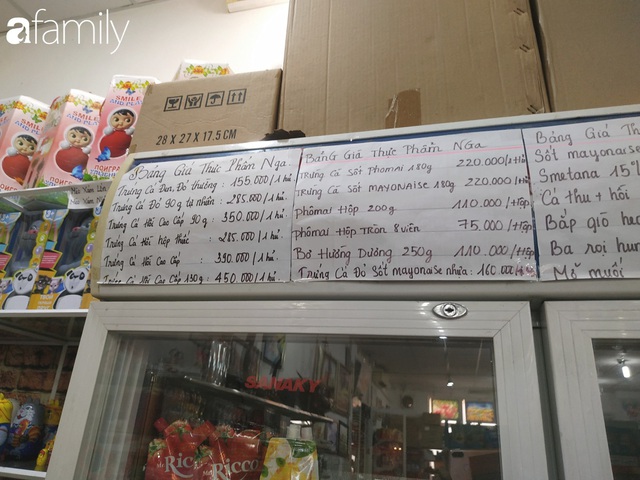 afamily
SMILE
AND PLAY
SMILE
AND PLAY
28 X 27 X 17.5 CM
Bảng Giá Thực Phẩm Nga.
Trứng Cá Đen, Đỏ thường : 155.000/1 hủ.
Trứng Cá Đỏ 90g tự nhiên : 285.000/1 hủ.
Trứng Cá Hồi Cao Cấp 90g : 350.000/1 hủ.
Trứng Cá Hồi hộp thiếc : 285.000/1 hủ.
Trứng Cá Hồi Cao Cấp : 390.000/1 hủ
Trứng Cá Hồi Cao Cấp 130g : 450.000/1 hủ.
Bảng Giá Thực Phẩm Nga
Trứng Cá Sốt Phomai 180g 220.000/1 Hủ
Trứng Cá Sốt Mayonaise 180g 220.000/1 Hủ
Phômai Hộp 200g 110.000/Hộp
Phômai Hộp Tròn 8 viên 75.000/Hộp
Bơ Hướng Dương 250g 110.000/Hộp
Trứng Cá Đỏ Sốt mayonaise nhựa : 160.000
Bảng Giá Th
Sốt mayonaise
Smetana 15%
Cá thu + hồi
Bắp giò
Ba rọi hun
Mỡ muối
SANAKY
Mr. Ricco
Ricco